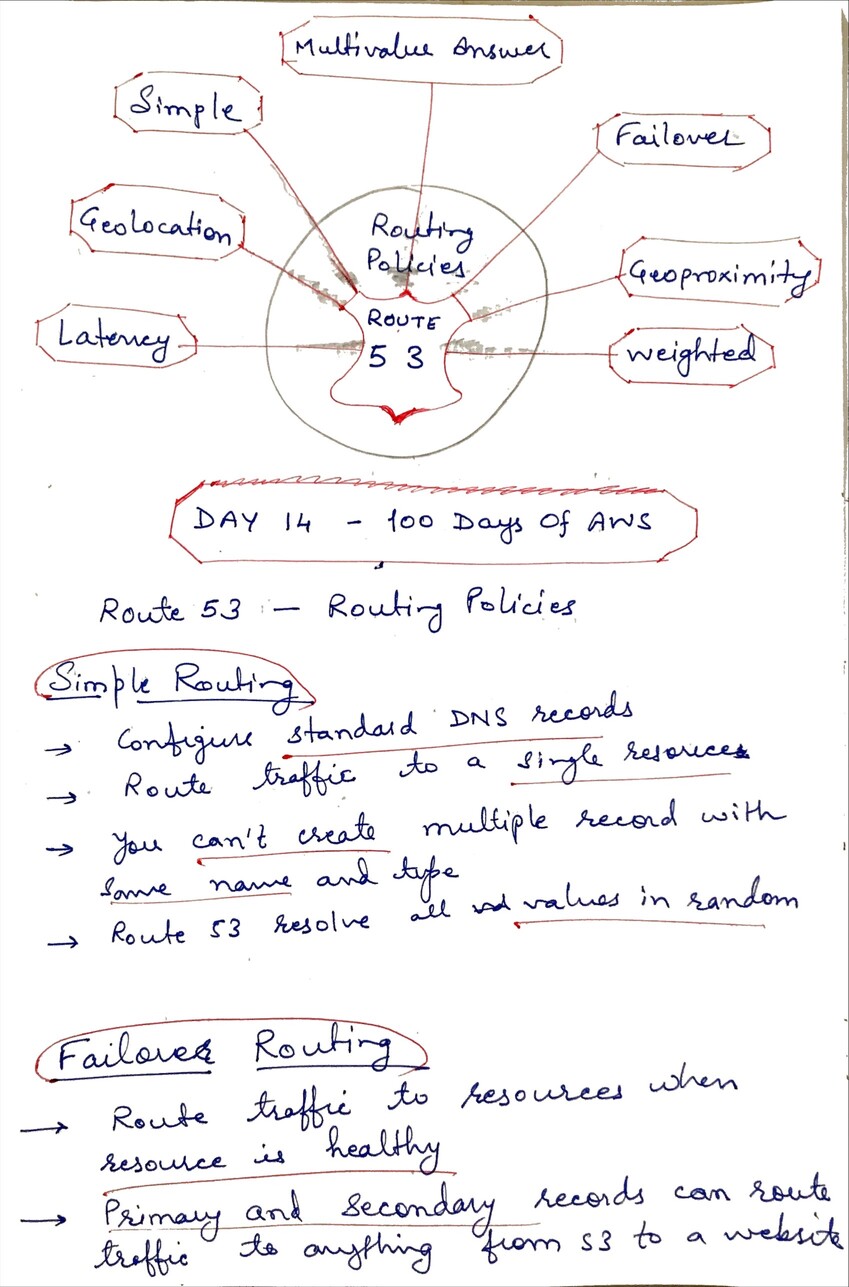 Multivalue Answer
Simple
Failover
Geolocation
Routing
Policies
Geoproximity
Latency
ROUTE
53
weighted
DAY 14 - 100 Days Of AWS
Route 53 - Routing Policies
Simple Routing
→ Configure standard DNS records
→ Route traffic to a single resources
→ You can't create multiple record with
same name and type
→ Route 53 resolve all values in random
Failover Routing
→ Route traffic to resources when
resource is healthy
→ Primary and secondary records can route
traffic to anything from S3 to a website